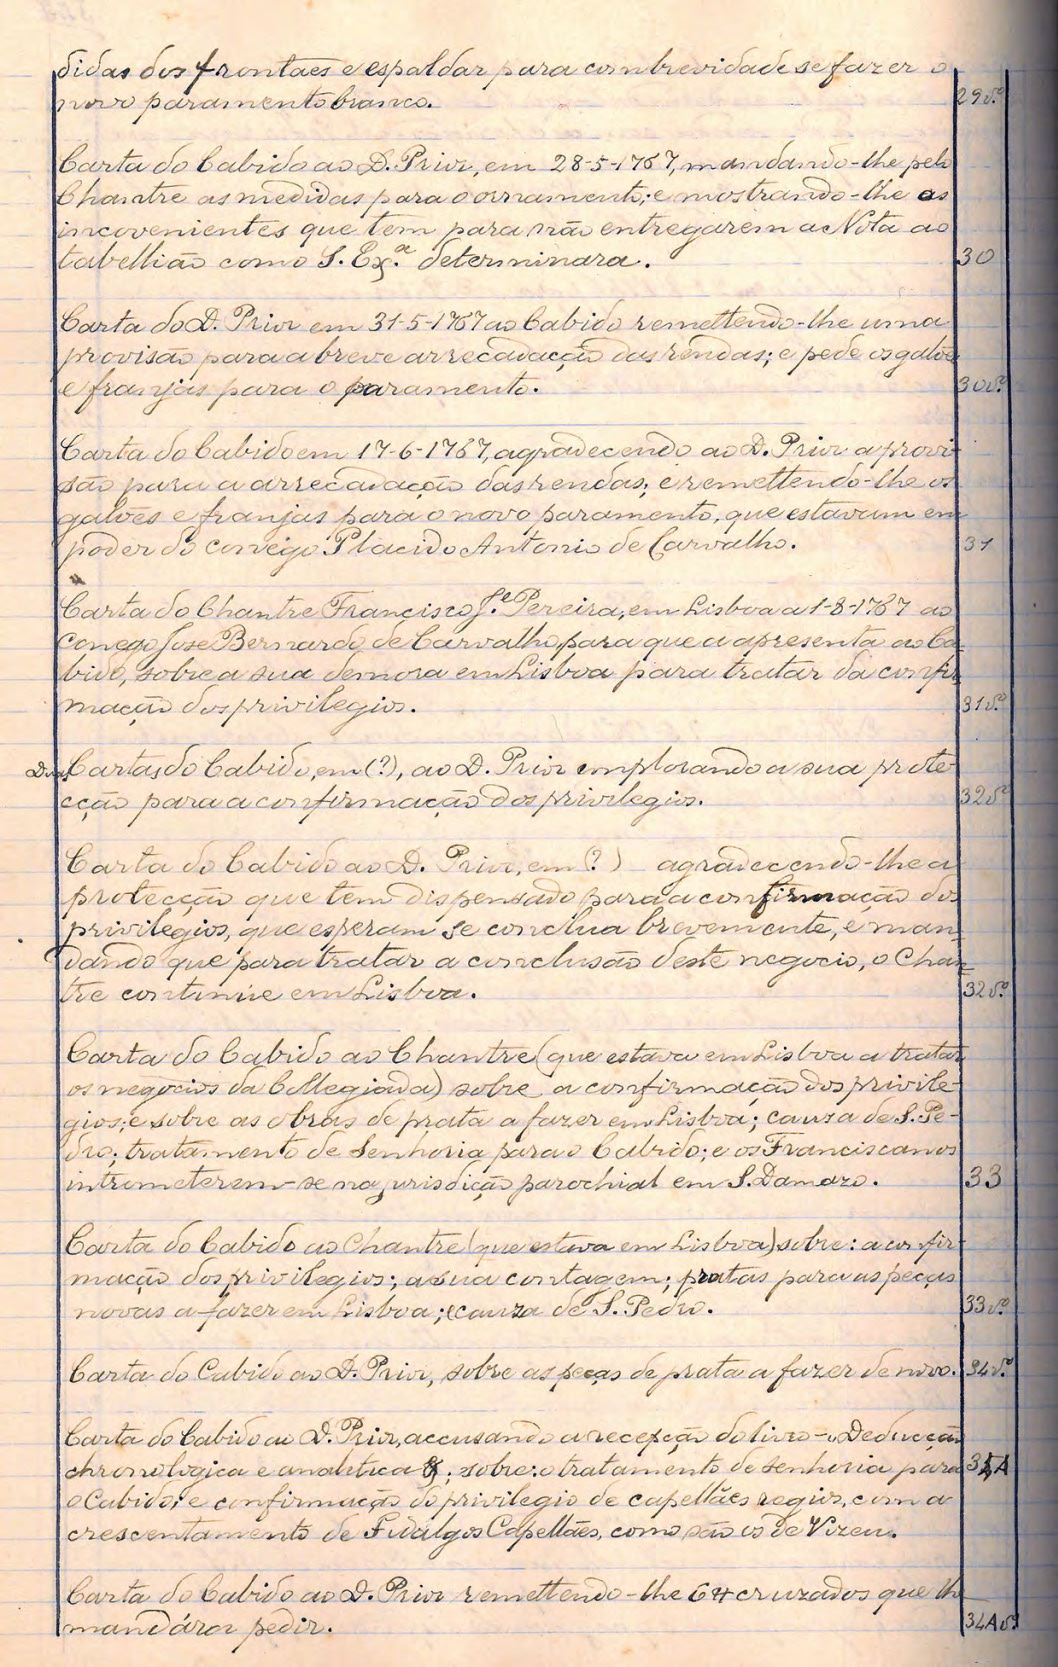 didas dos frontaes e espaldar para com brevidade se fazer o
novo paramento branco. 29v.º
Carta do Cabido ao D. Prior, em 28-5-1767, mandando-lhe pelo
Chantre as medidas para o ornamento; e mostrando-lhe os
incovenientes que tem para não entregarem a Nota ao
tabellião como S. Ex.ª determinara. 30
Carta do D. Prior em 31-5-1767 ao Cabido remettendo-lhe uma
provisão para a breve arrecadação das rendas; e pede os galoes
e franjas para o paramento. 30v.º
Carta do Cabido em 17-6-1767, agradecendo ao D. Prior a provi-
são para a arrecadação das rendas; e remettendo-lhe os
galões e franjas para o novo paramento, que estavam em
poder do conego Placido Antonio de Carvalho. 31
Carta do Chantre Francisco J.e Pereira, em Lisboa a 1-8-1767 ao
conego Jose Bernardo de Carvalho, para que a apresenta ao Ca-
bido, sobre a sua demora em Lisboa para tratar da confir-
mação dos privilegios. 31v.º
Duas Cartas do Cabido, em (?), ao D. Prior emplorando a sua prote-
cção para a confirmação dos privilegios. 32v.º
Carta do Cabido ao D. Prior, em (?) agradecendo-lhe a
protecção que tem dispensado para a confirmação dos
privilegios, que esperam se conclua brevemente, e man-
dando que para tratar a conclusão deste negocio, o Chan-
tre continúe em Lisboa. 32v.º
Carta do Cabido ao Chantre (que estava em Lisboa a tratar
os negocios da Collegiada) sobre a confirmação dos privile-
gios; e sobre as obras de prata a fazer em Lisboa; cauza de S. Pe-
dro; tratamento de Senhoria para o Cabido; e os Franciscanos
intrometerem-se na jurisdição parochial em S. Damazo. 33
Carta do Cabido ao Chantre (que estava em Lisboa) sobre: a confir-
mação dos privilegios; a sua contagem; pratas para as peças
novas a fazer em Lisboa; e cauza de S. Pedro. 33v.º
Carta do Cabido ao D. Prior, sobre as peças de prata a fazer de novo. 34v.º
Carta do Cabido ao D. Prior, accusando a recepção do livro - Deducção
chronologica e analetica; sobre: o tratamento de senhoria para 34A
o Cabido; e confirmação do privilegio de capellães regios, com a-
crescentamento de Fidalgos Capellães, como são os de Vizeu.
Carta do Cabido ao D. Prior remettendo-lhe 64 cruzados que lhe
mandára pedir. 34Av.º